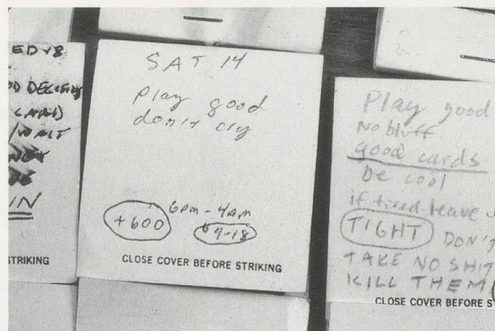 ED
OD DECISIONS
CARD
WAIT
IN
STRIKING
SAT 14
play good
don't cry
6pm - 4am
+600
9-18
CLOSE COVER BEFORE STRIKING
Play good
No bluff
good cards
be cool
if tired leave
TIGHT DON'T
TAKE NO SHIT
KILL THEM
CLOSE COVER BEFORE S